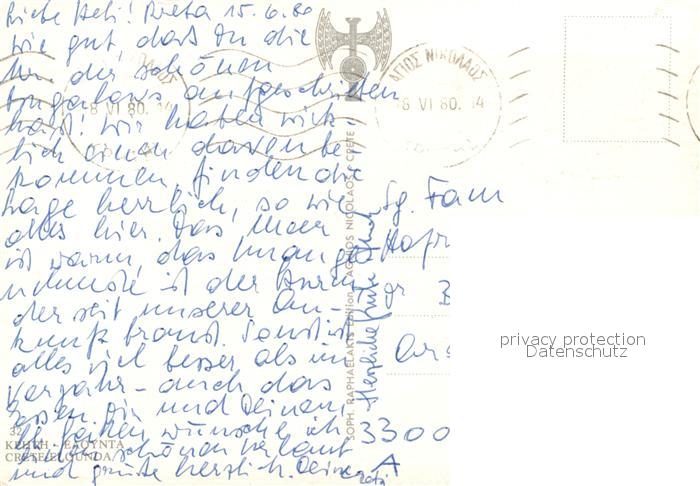 Liebe Heli! Kreta 15.6.80
wie gut, dass Du die
der schönen
Bungalows aufgeschrieben
hast! Wir haben wirk-
lich einen davon be-
kommen, finden die
Lage herrlich, so wie
alles hier. Das Meer
ist warm, das unange-
nehmste ist der Sturm
der seit unserer An-
kunft braust. Sonst ist
alles viel besser als im
Vorjahr – auch das
Essen. Dir und Deinen
wünsche ich
schönen Urlaub
und grüße herzlich. Deine
32
ΚΡΗΤΗ - ΕΛΟΥΝΤΑ
CRETE ELOUNDA
SOPH. RAPHAELAKIS Edition AGHIOS NICOLAOS CRETE
Herzliche Grüße
ΑΓΙΟΣ ΝΙΚΟΛΑΟΣ
18 VI 80. 14
18 VI 80. 14
Sg. Fam
3300
A
privacy protection
Datenschutz